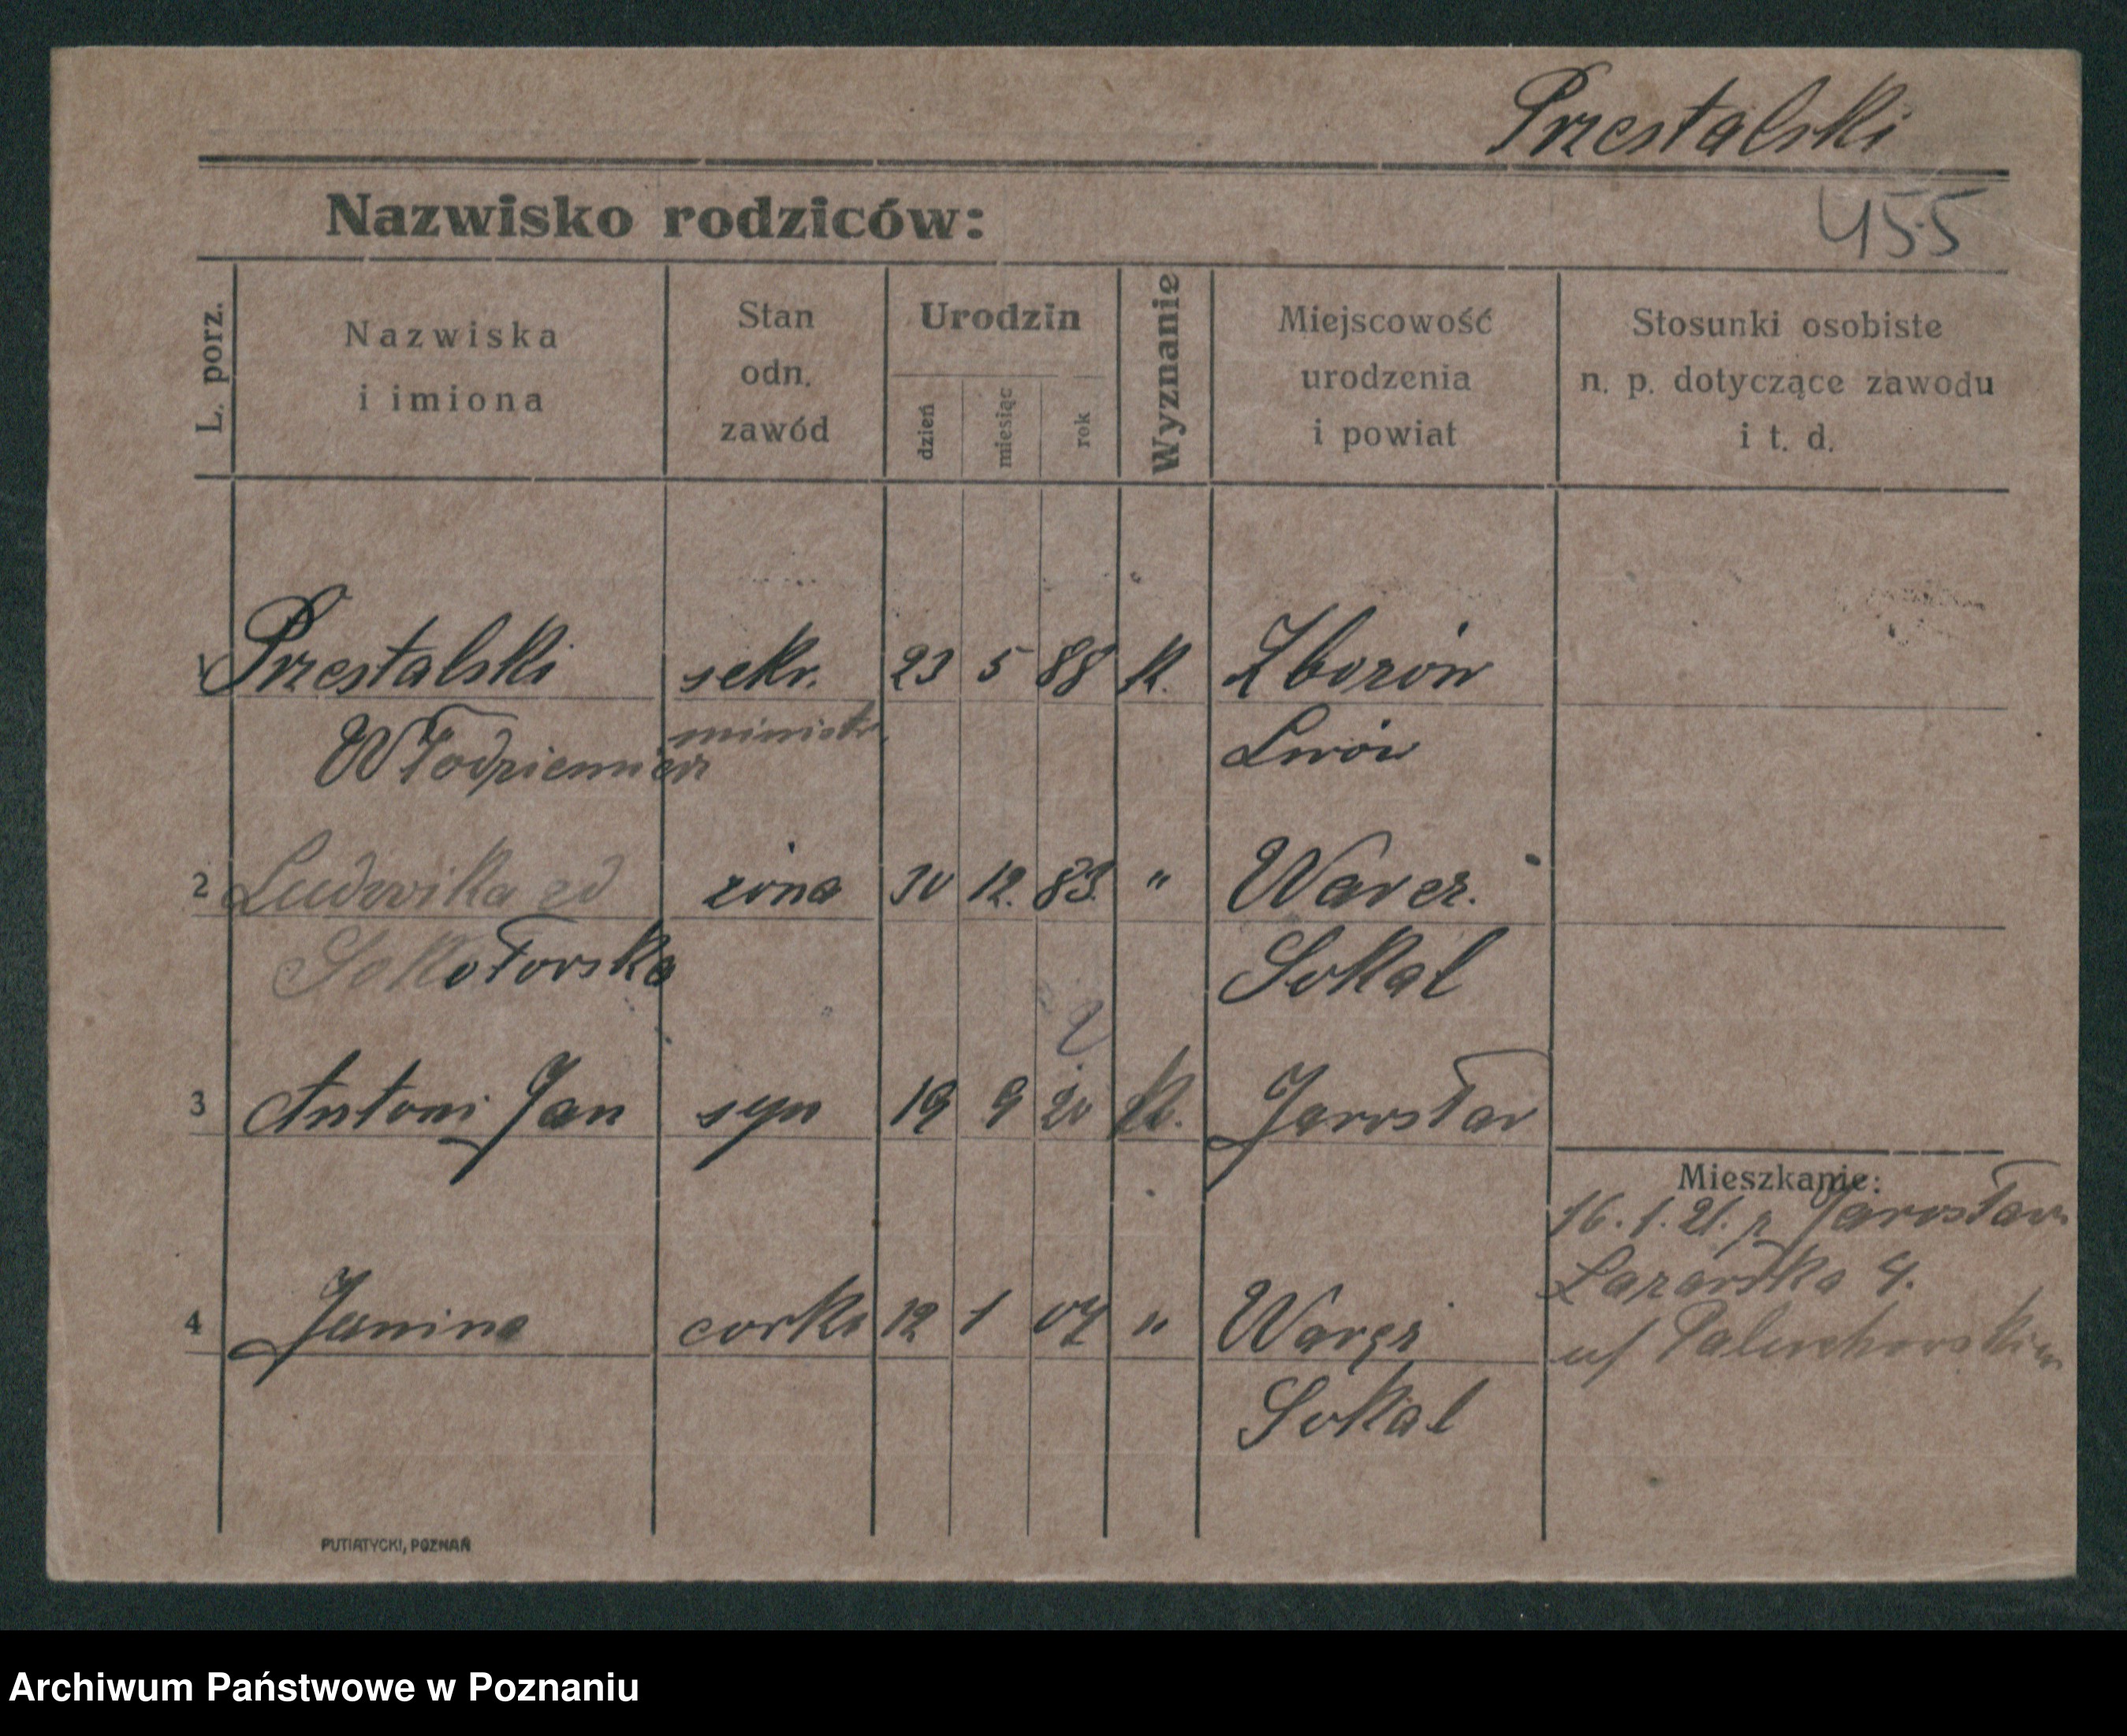 Przestalski
455
Nazwisko rodziców:
L. porz.
Nazwiska
i imiona
Stan
odn.
zawód
Urodzin
dzień
miesiąc
rok
Wyznanie
Miejscowość
urodzenia
i powiat
Stosunki osobiste
n. p. dotyczące zawodu
i t. d.
1 Przestalski sekr. 23 5 88 k. Zborów
Włodziemierz ministr. Lwów
2 Ludwika zd żona 30 12. 83. "
Sokołowska Sokal
3 Antoni Jan syn 19 9 20 k. Jarosław
Mieszkanie:
16. 1. 21. z Jarosławia
Łazarska 4.
4 Janina corka 12 1 07 "
u/
Sokal
PUTIATYCKI, POZNAŃ
Archiwum Państwowe w Poznaniu